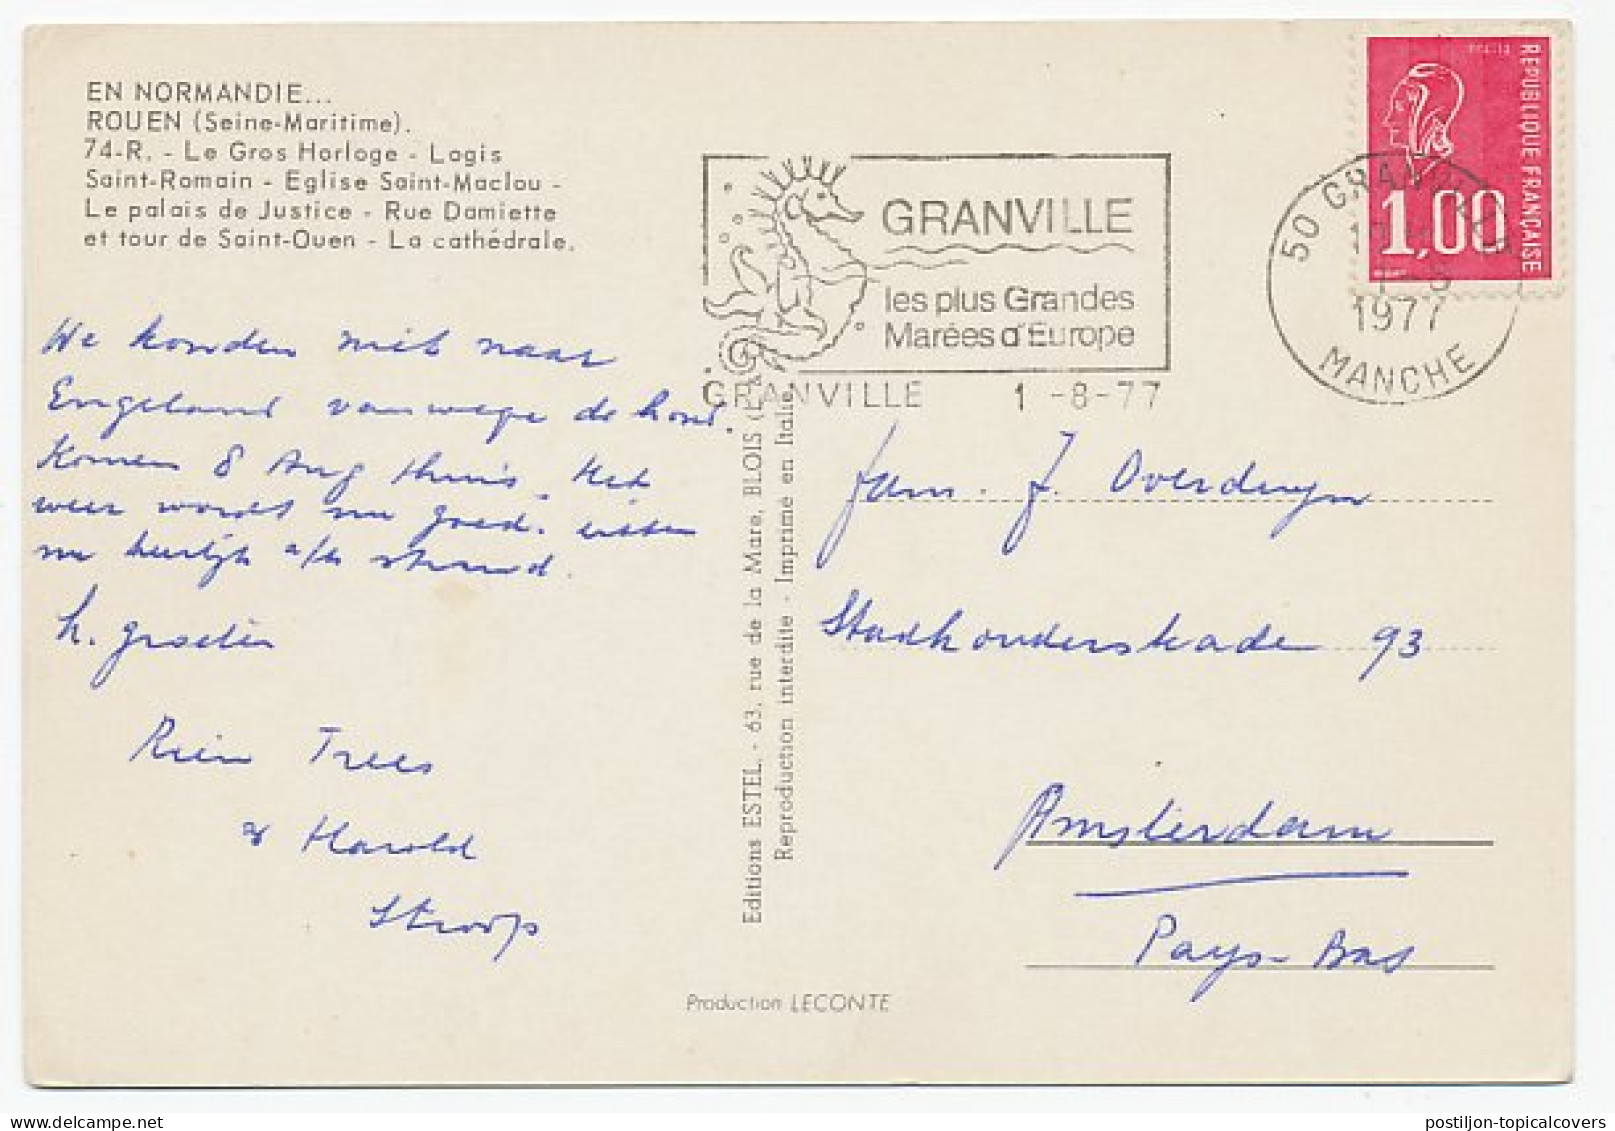 EN NORMANDIE...
ROUEN (Seine-Maritime).
74-R. - Le Gros Horloge - Logis
Saint-Romain - Eglise Saint-Maclou -
Le palais de Justice - Rue Damiette
et tour de Saint-Ouen - La cathédrale.
We konden niet naar
Engeland vanwege de hond.
Komen 8 Aug thuis. Het
weer wordt nu goed. zitten
nu heerlijk a/h strand.
h. groeten
Rien Trees
& Harold
Stroop
Editions ESTEL. - 63, rue de la Mare, BLOIS (L
Reproduction interdite - Imprimé en Italie.
Production LECONTE
GRANVILLE
les plus Grandes
Marées d'Europe
GRANVILLE 1 -8-77
50 GRANVILLE
1977
MANCHE
REPUBLIQUE FRANÇAISE
1,00
fam. J. Overduyn
Stadhouderskade 93
Amsterdam
Pays-Bas
postiljon-topicalcovers